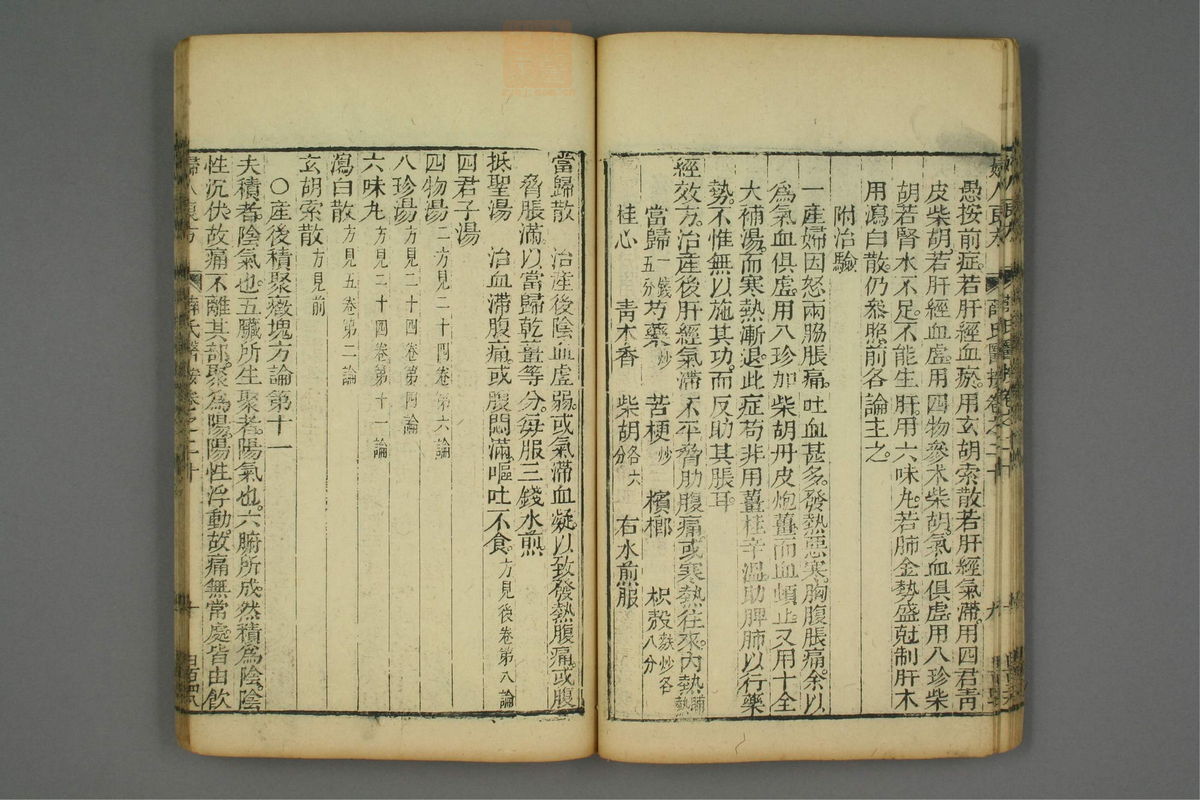 愚按前症。若肝經血瘀。用玄胡索散若肝經氣滯。用四君青
皮柴胡。若肝經血虛。用四物參术柴胡。氣血俱虛。用八珍柴
胡若腎水不足。不能生肝。用六味丸。若肺金勢盛尅制肝木
用瀉白散。仍叅照前各論主之。
附治驗
一產婦因怒兩脇脹痛。吐血甚多。發熱惡寒。胸腹脹痛。余以
爲氣血俱虛。用八珍加柴胡丹皮炮薑而血頓止。又用十全
大補湯。而寒熱漸退。此症苟非用薑桂辛溫。助脾肺以行藥
勢。不惟無以施其功。而反助其脹耳。
經效方。治產後肝經氣滯不平脅肋腹痛。或寒熱往來。內熱晡熱
當歸一錢五分 芍藥炒 苦梗炒 檳榔 枳殼麩炒各八分
桂心 青木香 柴胡各六分 右水煎服
當歸散 治產後陰血虛弱。或氣滯血凝。以致發熱腹痛。或腹
脅脹滿。以當歸乾薑等分。每服三錢水煎。
抵聖湯 治血滯腹痛。或腹悶滿嘔吐不食。方見後卷第八論
四君子湯
四物湯二方見二十四卷第六論
八珍湯方見二十四卷第四論
六味丸方見二十四卷第十一論
瀉白散方見五卷第二論
玄胡索散方見前
○產後積聚癥塊方論第十一
夫積者。陰氣也。五臟所生聚者。陽氣也。六腑所成。然積爲陰。陰
性沉伏故痛不離其部。聚爲陽。陽性浮動。故痛無常處。皆由飲
婦人良方 薛氏醫按卷之二十 十